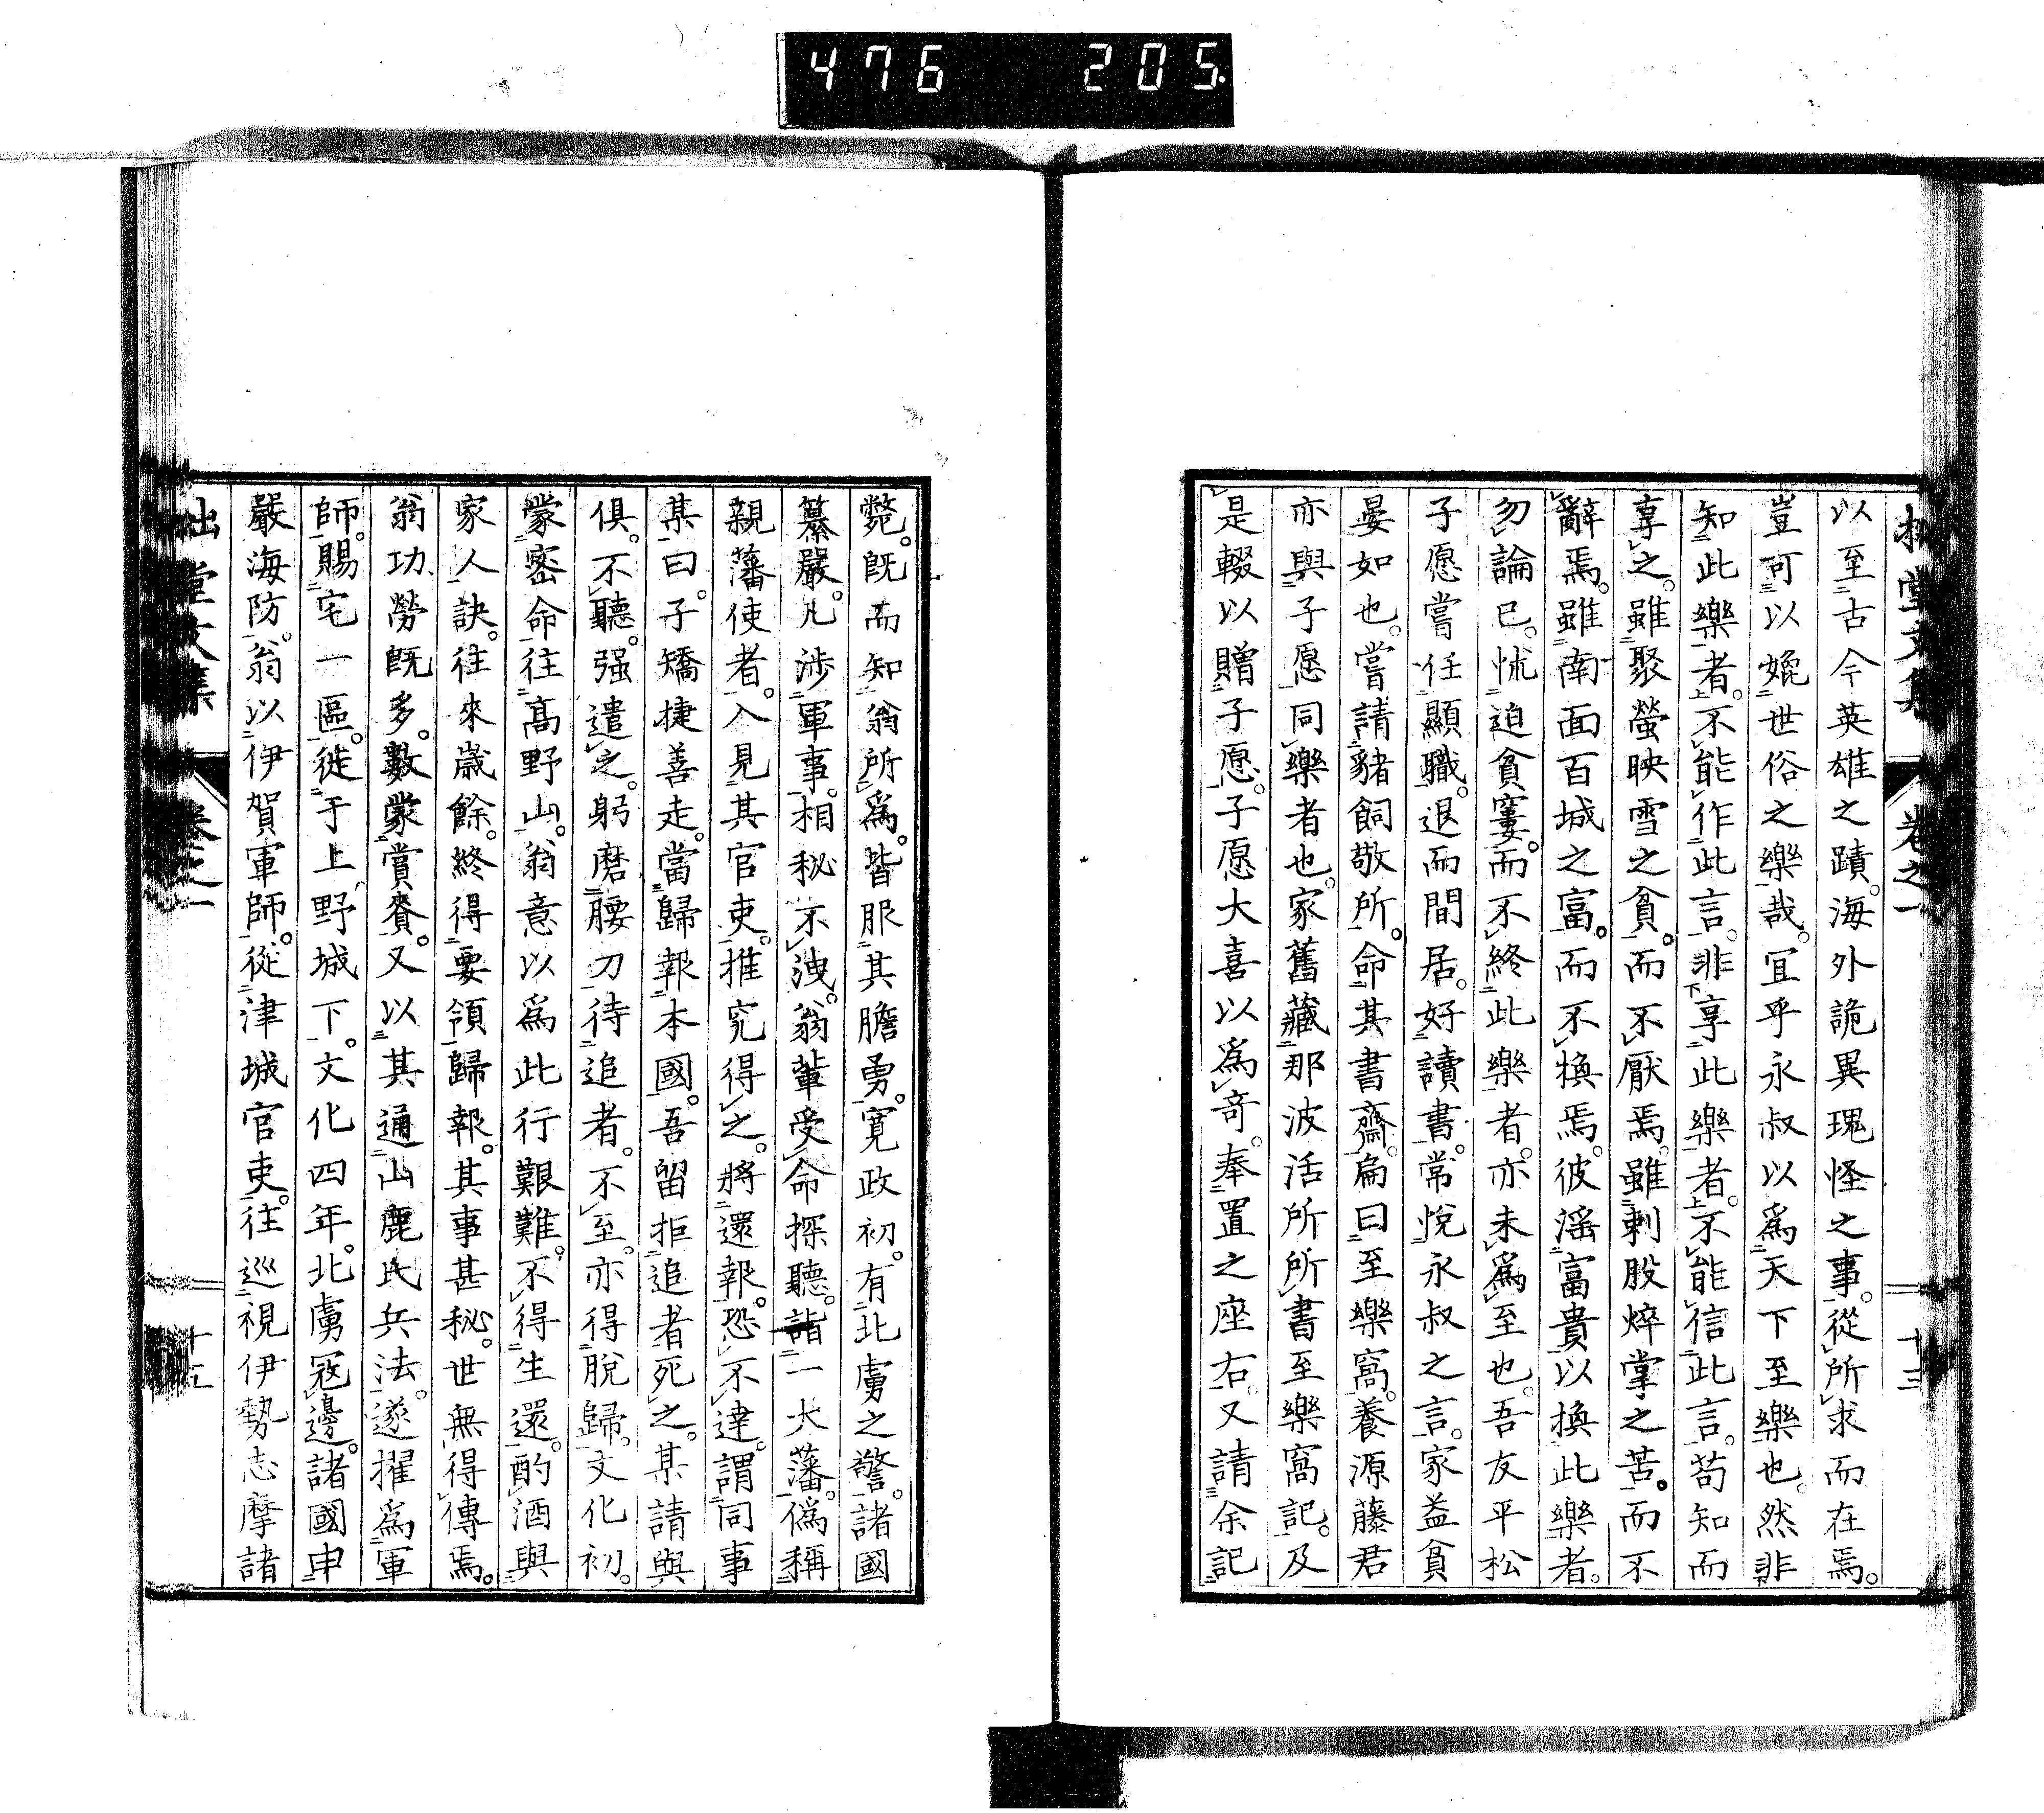 476 205
拙堂文集 卷之一 十三
以至古今英雄之蹟。海外詭異瑰怪之事。從所求而在焉。
豈可以媲世俗之樂哉。宜乎永叔以爲天下至樂也。然非
知此樂者。不能作此言。非享此樂者。不能信此言。苟知而
享之。雖聚螢映雪之貧。而不厭焉。雖刺股焠掌之苦。而不
辭焉。雖南面百城之富。而不換焉。彼滛富貴以換此樂者。
勿論已。怵迫貧窶。而不終此樂者。亦未爲至也。吾友平松
子愿嘗任顯職。退而間居。好讀書。常悅永叔之言。家益貧
晏如也。嘗請豬飼敬所。命其書齋。扁曰至樂窩。養源藤君
亦與子愿同樂者也。家舊藏那波活所所書至樂窩記。及
是輟以贈子愿。子愿大喜以爲奇。奉置之座右。又請余記
斃。旣而知翁所爲。皆服其膽勇。寬政初。有北虜之警。諸國
纂嚴。凡涉軍事。相秘不洩。翁輩受命探聽。詣一大藩。僞稱
親藩使者。入見其官吏。推究得之。將還報。恐不達。謂同事
某曰。子矯捷善走。當歸報本國。吾留拒追者死之。某請與
俱。不聽。强遣之。躬磨腰刀待追者。不至。亦得脫歸。文化初。
蒙密命往高野山。翁意以爲此行艱難。不得生還。酌酒與
家人訣。往來歲餘。終得要領歸報。其事甚秘。世無得傳焉。
翁功勞旣多。數蒙賞賚。又以其通山鹿氏兵法。遂擢爲軍
師。賜宅一區。徙于上野城下。文化四年。北虜寇邊。諸國申
嚴海防。翁以伊賀軍師。從津城官吏。往巡視伊勢志摩諸
拙堂文集 卷之一